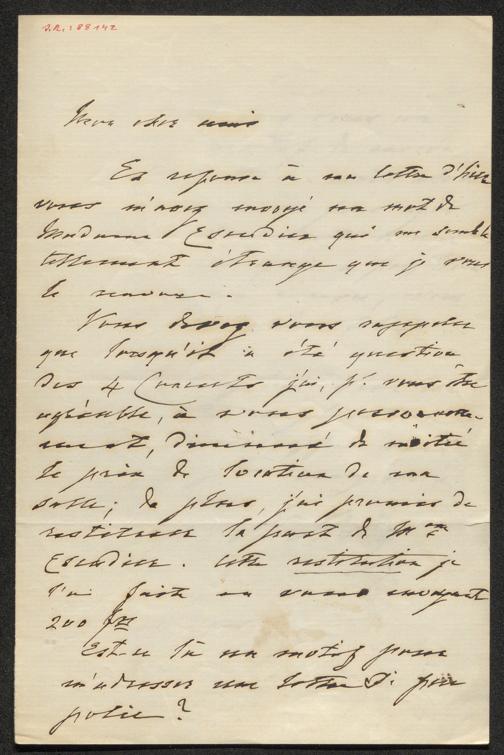 J.R. : 88142
Mon cher ami
En reponse à ma lettre d'hier
vous m'avez envoyé un mot de
Madame Escudier qui me semble
tellement étrange que je vous
le renvoie.
Vous devez vous rappeler
que lorsqu'il a été question
des 4 Concerts j'ai, pr. vous être
agréable, à vous personnelle-
ment, diminué de moitié
le prix de location de ma
salle; de plus, j'ai promis de
restituer la part de Mme
Escudier. Cette restitution je
l'ai faite en vous envoyant
200 frs
Est-ce là un motif pour
m'adresser une lettre si peu
polie?